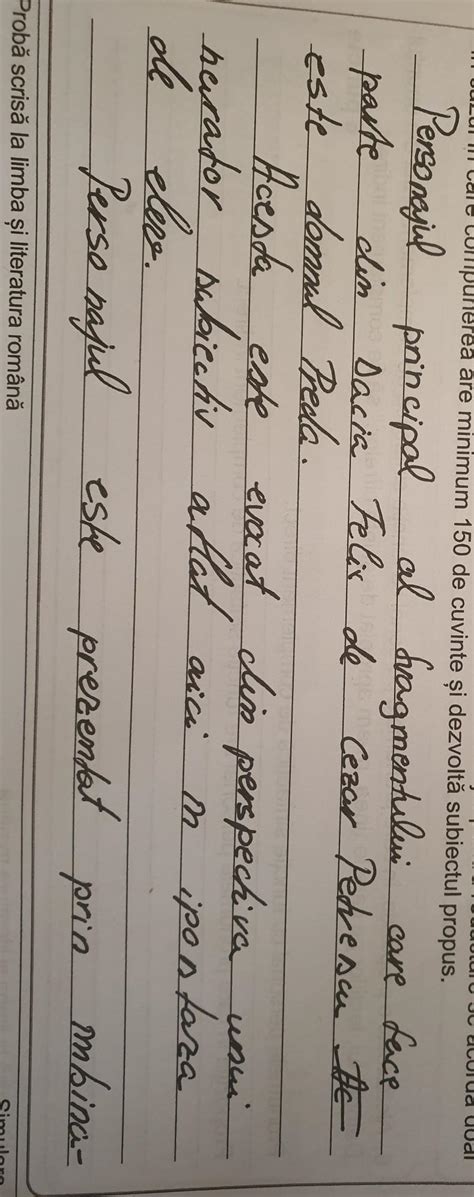 în care compunerea are minimum 150 de cuvinte și dezvoltă subiectul propus.
Personajul principal al fragmentului care face
parte din Dacia Felix de Cezar Petrescu Ac
este domnul Preda.
Acesta este evocat din perspectiva unui
narator subiectiv aflat aici în ipostaza
de elev.
Personajul este prezentat prin îmbina-
Probă scrisă la limba și literatura română
Simulare